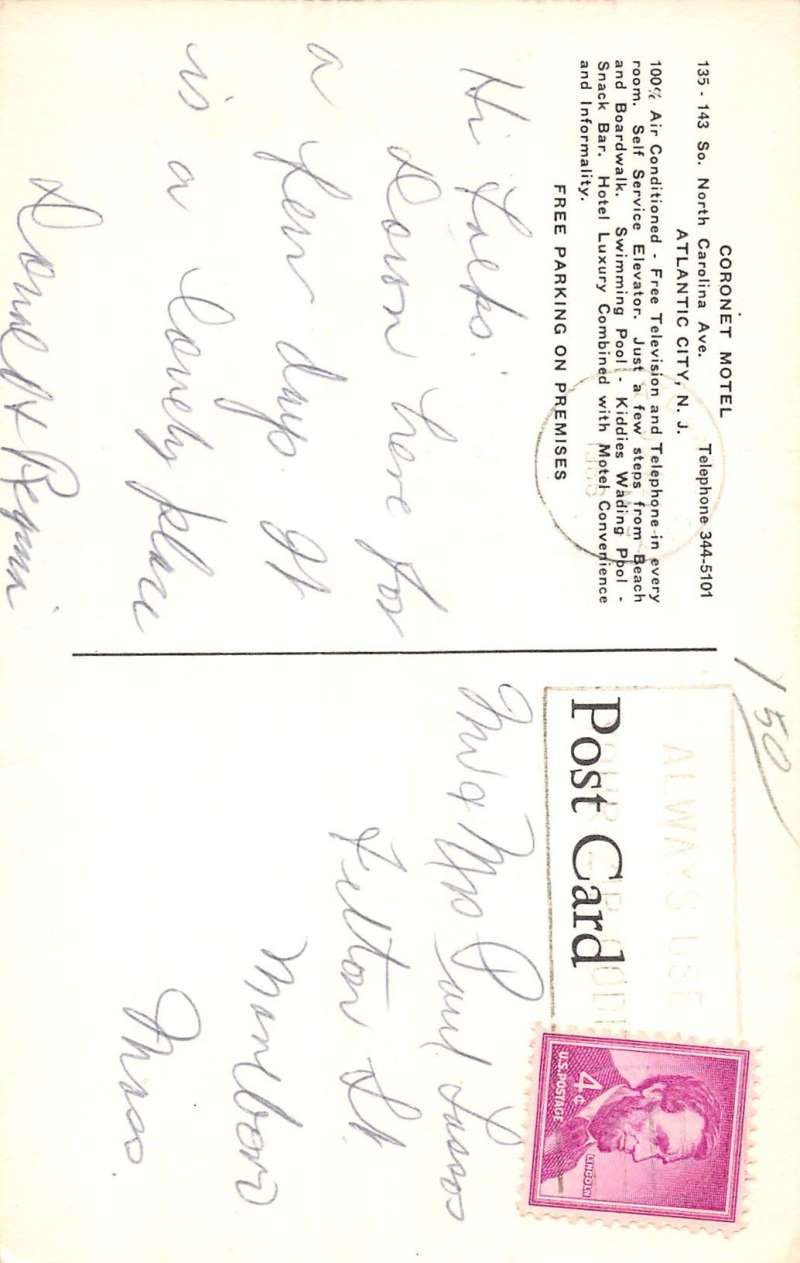 CORONET MOTEL
135 - 143 So. North Carolina Ave. Telephone 344-5101
ATLANTIC CITY, N. J.
100% Air Conditioned - Free Television and Telephone in every
room. Self Service Elevator. Just a few steps from Beach
and Boardwalk. Swimming Pool - Kiddies Wading Pool -
Snack Bar. Hotel Luxury Combined with Motel Convenience
and Informality.
FREE PARKING ON PREMISES
Hi Folks:
Down here for
a few days. It
is a lovely place
&
150
Post Card
ALWAYS USE
U.S. POSTAGE
4¢
LINCOLN
Mr & Mrs Paul
Felton St.
Marlboro
Mass.